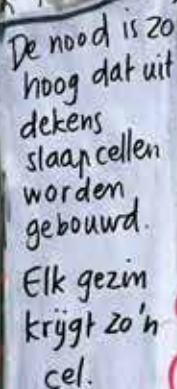 De nood is zo
hoog dat uit
dekens
slaapcellen
worden
gebouwd.
Elk gezin
krijgt zo'n
cel.